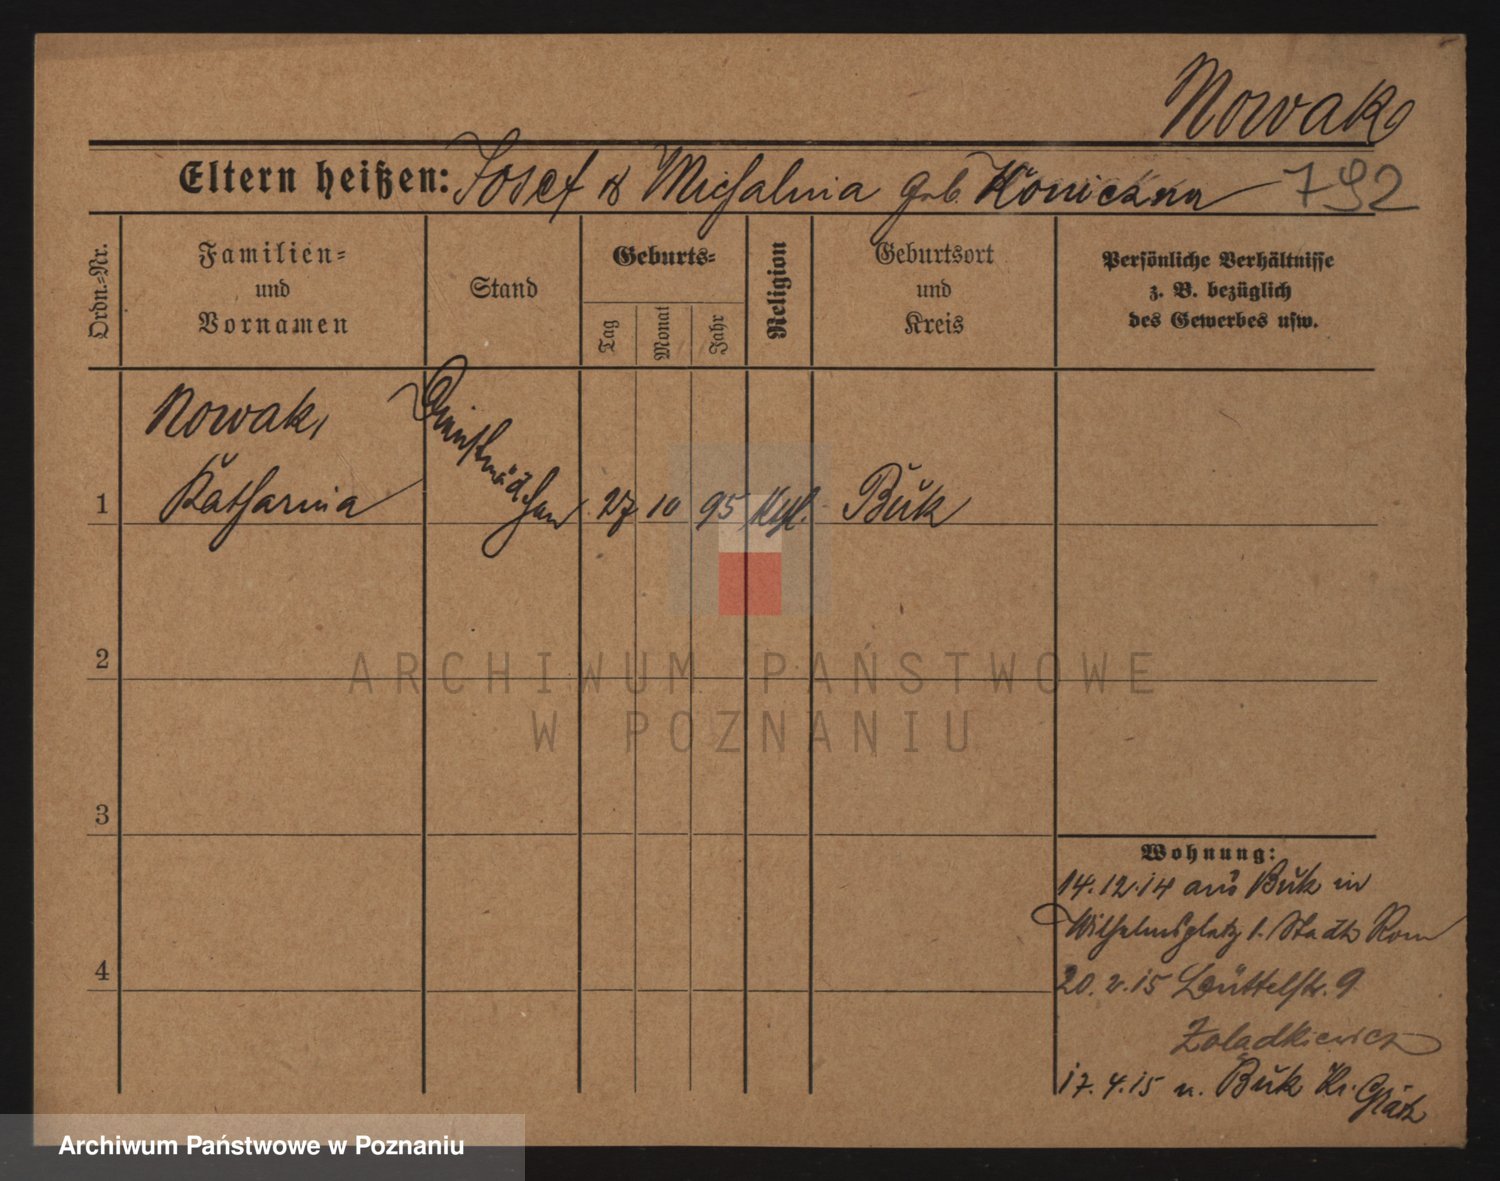 Nowak
Eltern heißen: Josef & Michalina geb. Konieczna 792
Ordn.-Nr.
Familien-
und
Vornamen
Stand
Geburts-
Tag
Monat
Jahr
Religion
Geburtsort
und
Kreis
Persönliche Verhältnisse
z. B. bezüglich
des Gewerbes usw.
Nowak,
1 Katharina Dienstmädchen 27 10 95 Kath. Buk
2
ARCHIWUM PAŃSTWOWE
W POZNANIU
3
4
Wohnung:
14.12.14 aus Buk in
Wilhelmsplatz 1. Stadt Rom
20. 2. 15 Büttelstr. 9
Zoladkiewicz
17. 4. 15 n. Buk Kr. Grätz
Archiwum Państwowe w Poznaniu